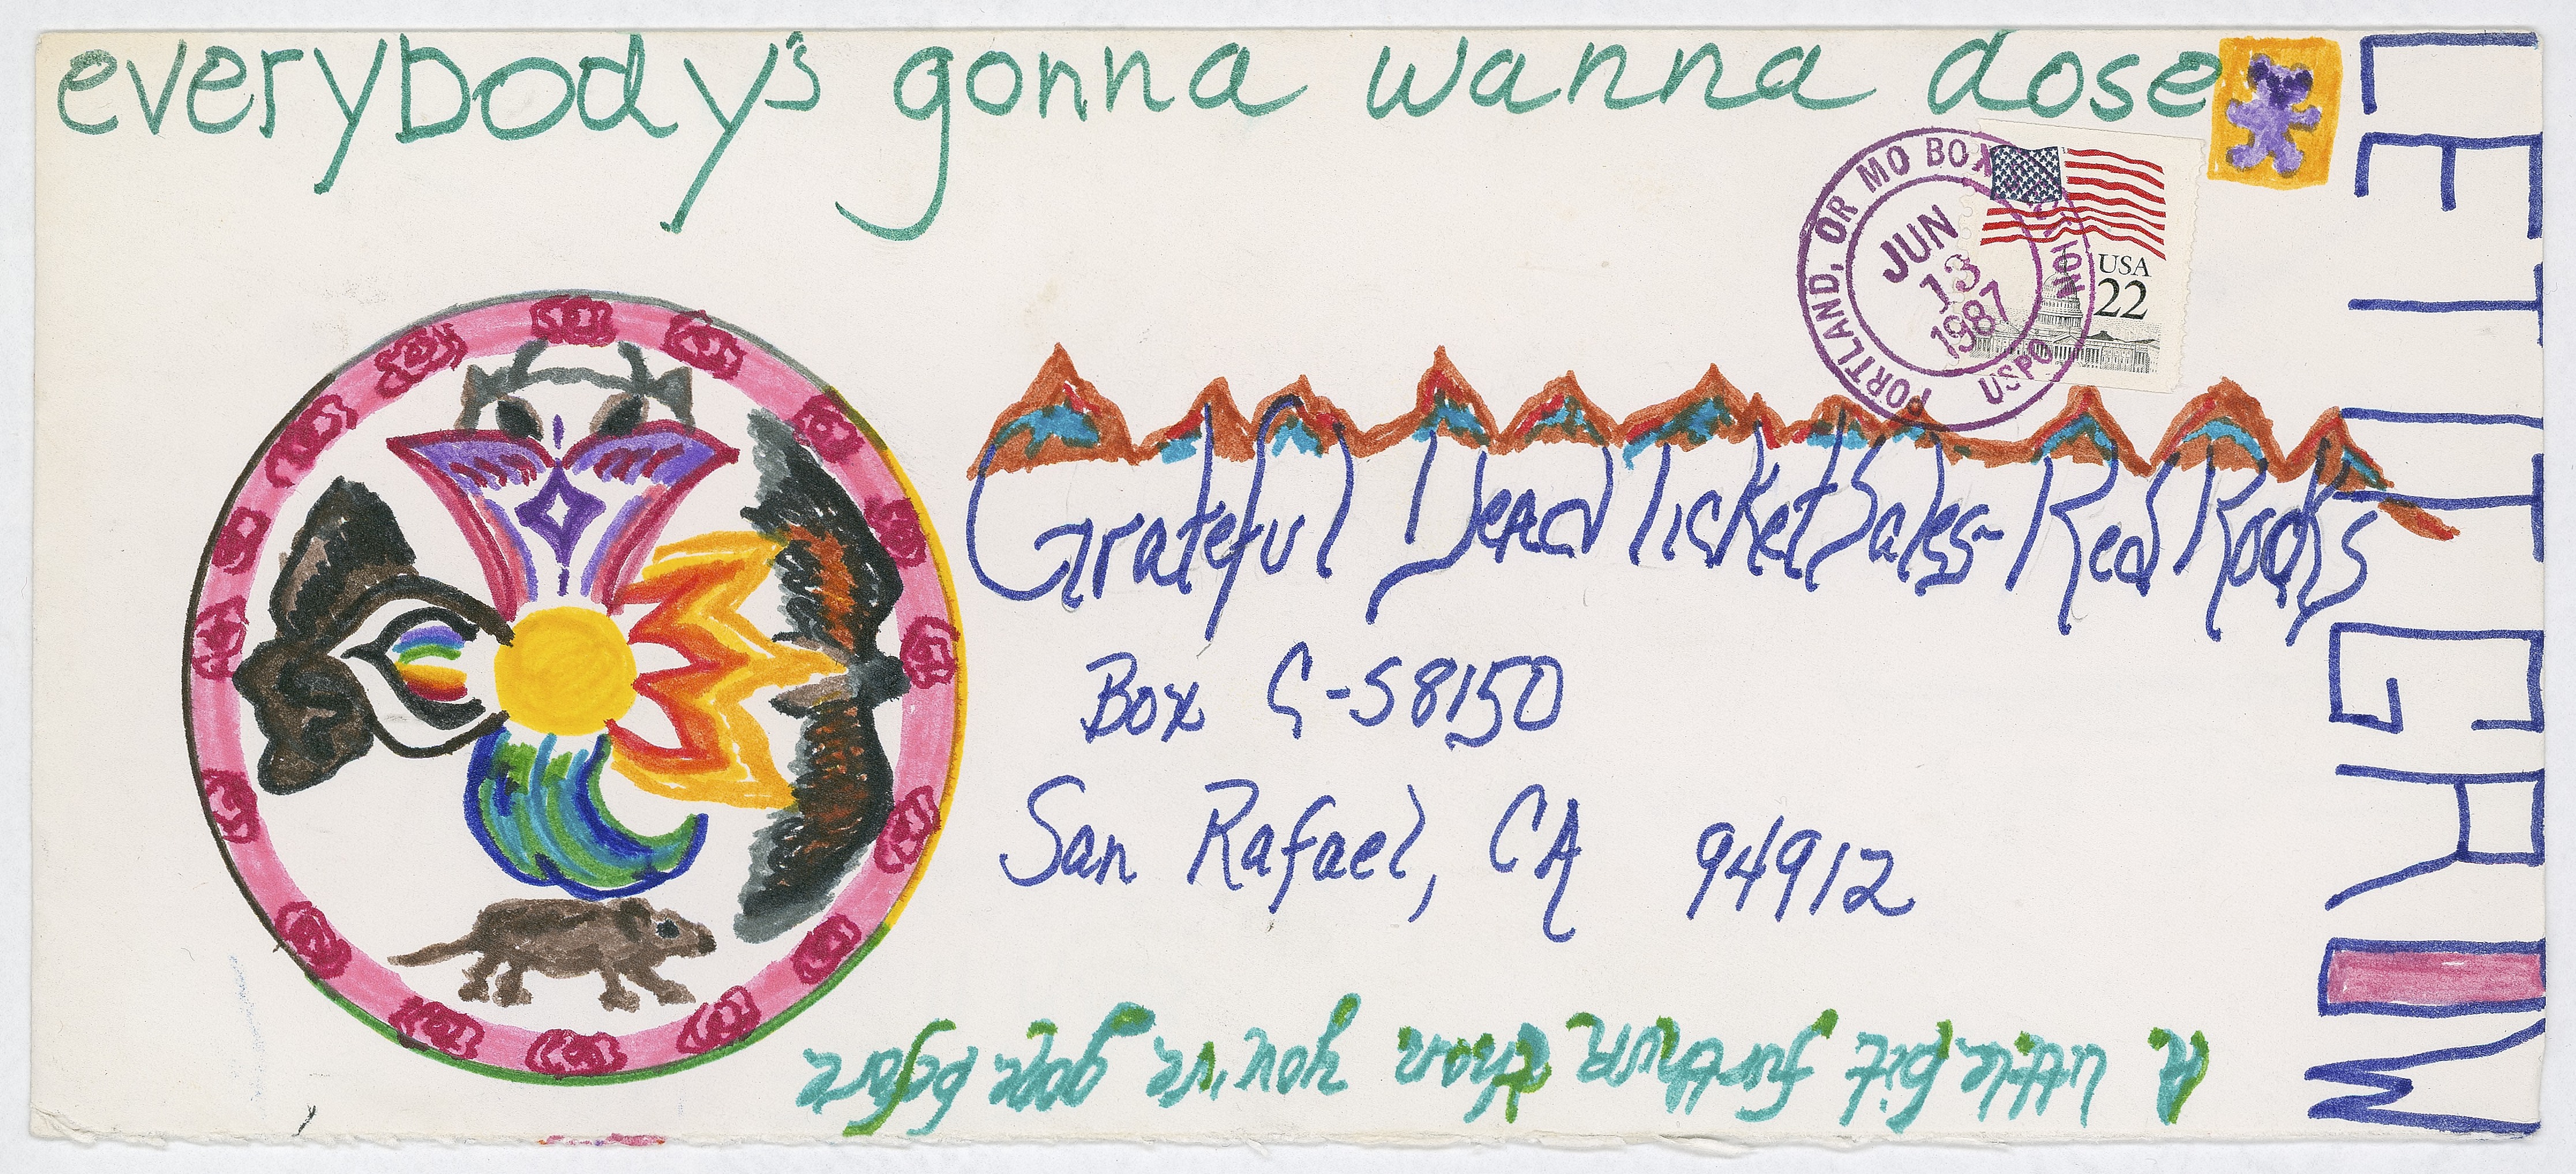 everybody's gonna wanna dose
LET IT GROW
PORTLAND, OR MO BOX
USPO
JUN
13
1987
USA
22
Grateful Dead Ticket Sales - Red Rocks
Box C-S8150
San Rafael, CA 94912
A little bit further than you've gone before